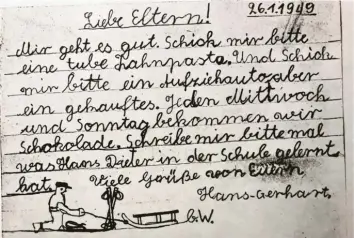 26.1.1949
Liebe Eltern!
Mir geht es gut. Schick mir bitte
eine tube Zahnpasta. Und Schick
mir bitte ein Aufziehauto, aber
ein gekauftes. Jeden Mittwoch
und Sonntag bekommen wir
Schokolade. Schreibe mir bitte mal
was Hans Dieter in der Schule gelernt
hat. Viele Grüße von Euern
Hans-Gerhart.
b.W.